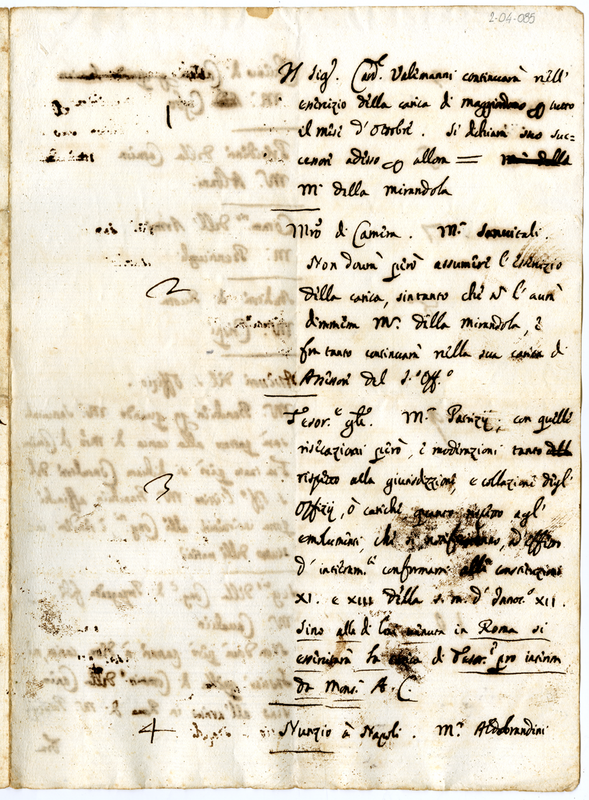 2-04-085
Il Sig.r Card. Valemanni continuarà nell'
1
esercizio della carica di Maggiordomo per tutto
il mese d'Ottobre. Si dichiari suo suc=
cessore adesso per allora =
M.r della Mirandola
Mro di Camera. M.r Sanvitali.
Non dovrà però assumere l'esercizio
2
della carica, sintanto che N l'avrà
dimessa M.r della Mirandola, e
fra tanto continuarà nella sua carica di
Assessore del S.o Off.o
Tesor.e gle. M.r Patrizij, con quelle
risecazioni però, e moderazioni tanto
3
rispetto alla giurisdizzione, e collazioni degl'
Offizij, ò cariche quanto rispetto agl'
emolumenti, che si, ad effetto
d'intieram.te conformarsi alle constituzioni
XI. e XIII della s. m. d'Innoc.o XII.
Sino alla di lui venuta in Roma si
eserciterà la carica di Tesor.e pro interim
da Mons.r A. C.
4 Nunzio à Napoli. M.r Aldobrandini